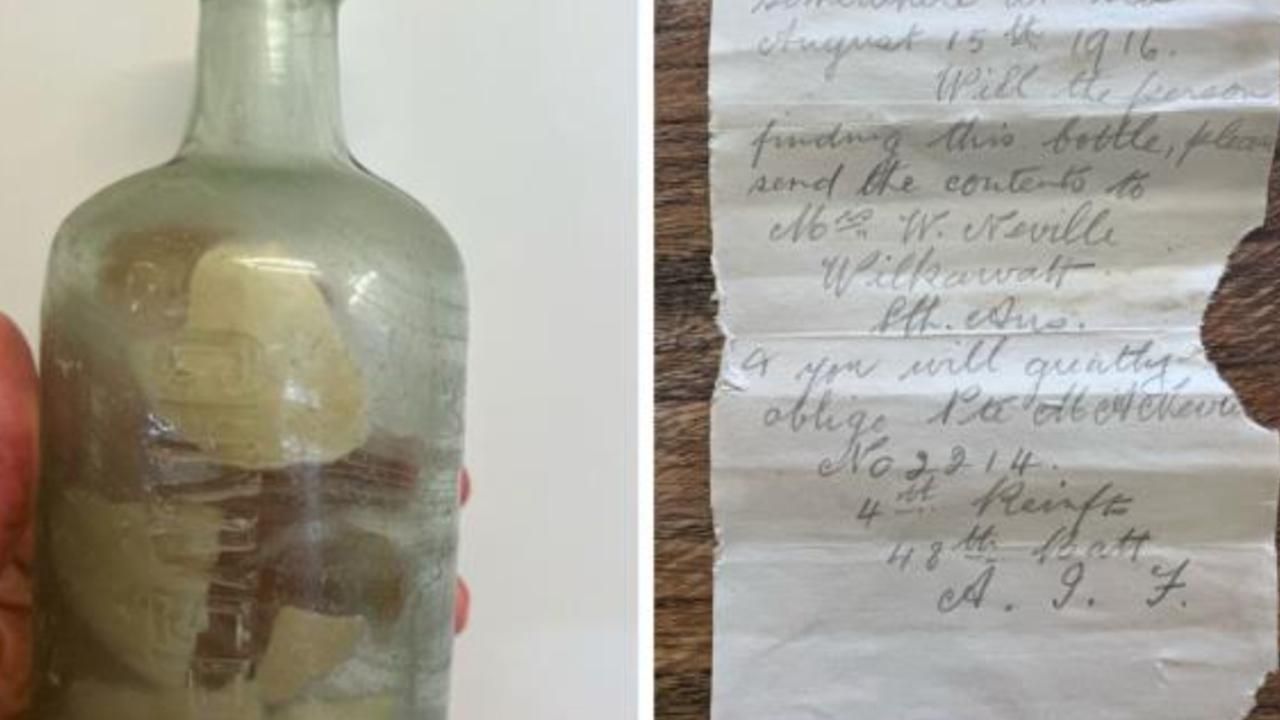 somewhere
August 15th 1916.
Will the person
finding this bottle, pleas
send the contents to
Mrs. W. Neville
Wilkawatt
Sth. Aus.
& you will greatly
oblige Pte
No 2214.
4th Reinfts
48th Batt
A. I. F.